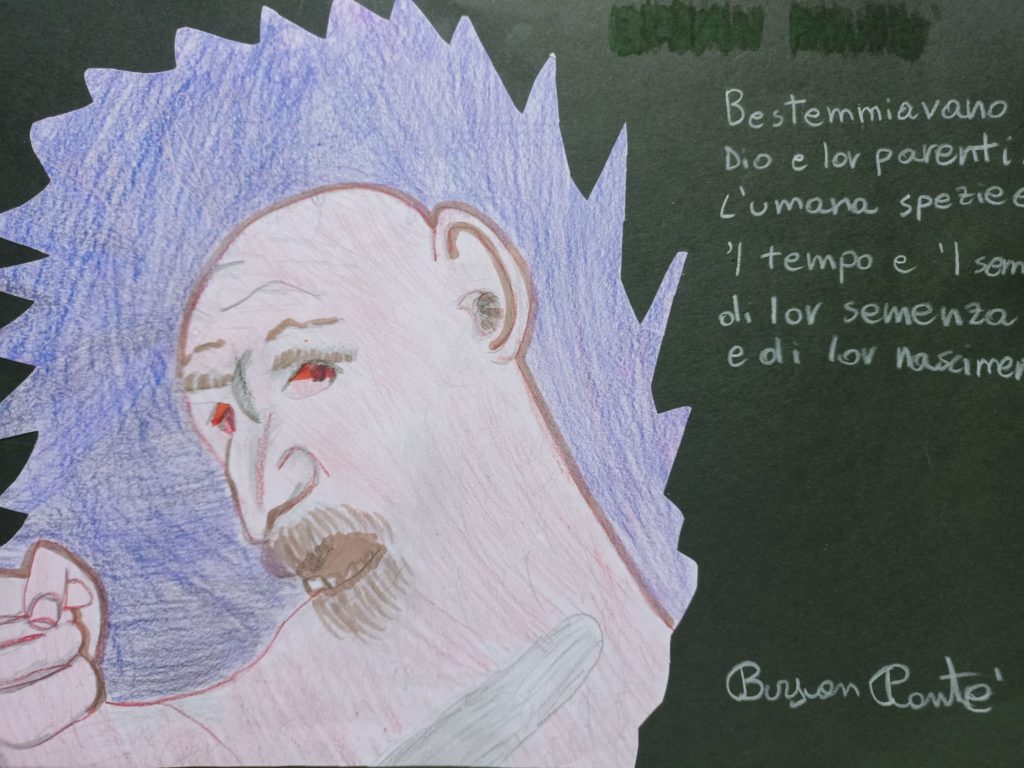 Bestemmiavano
Dio e lor parenti.
L'umana spezie e
'l tempo e 'l sem
di lor semenza
e di lor nascimen
Bryan Ponte'